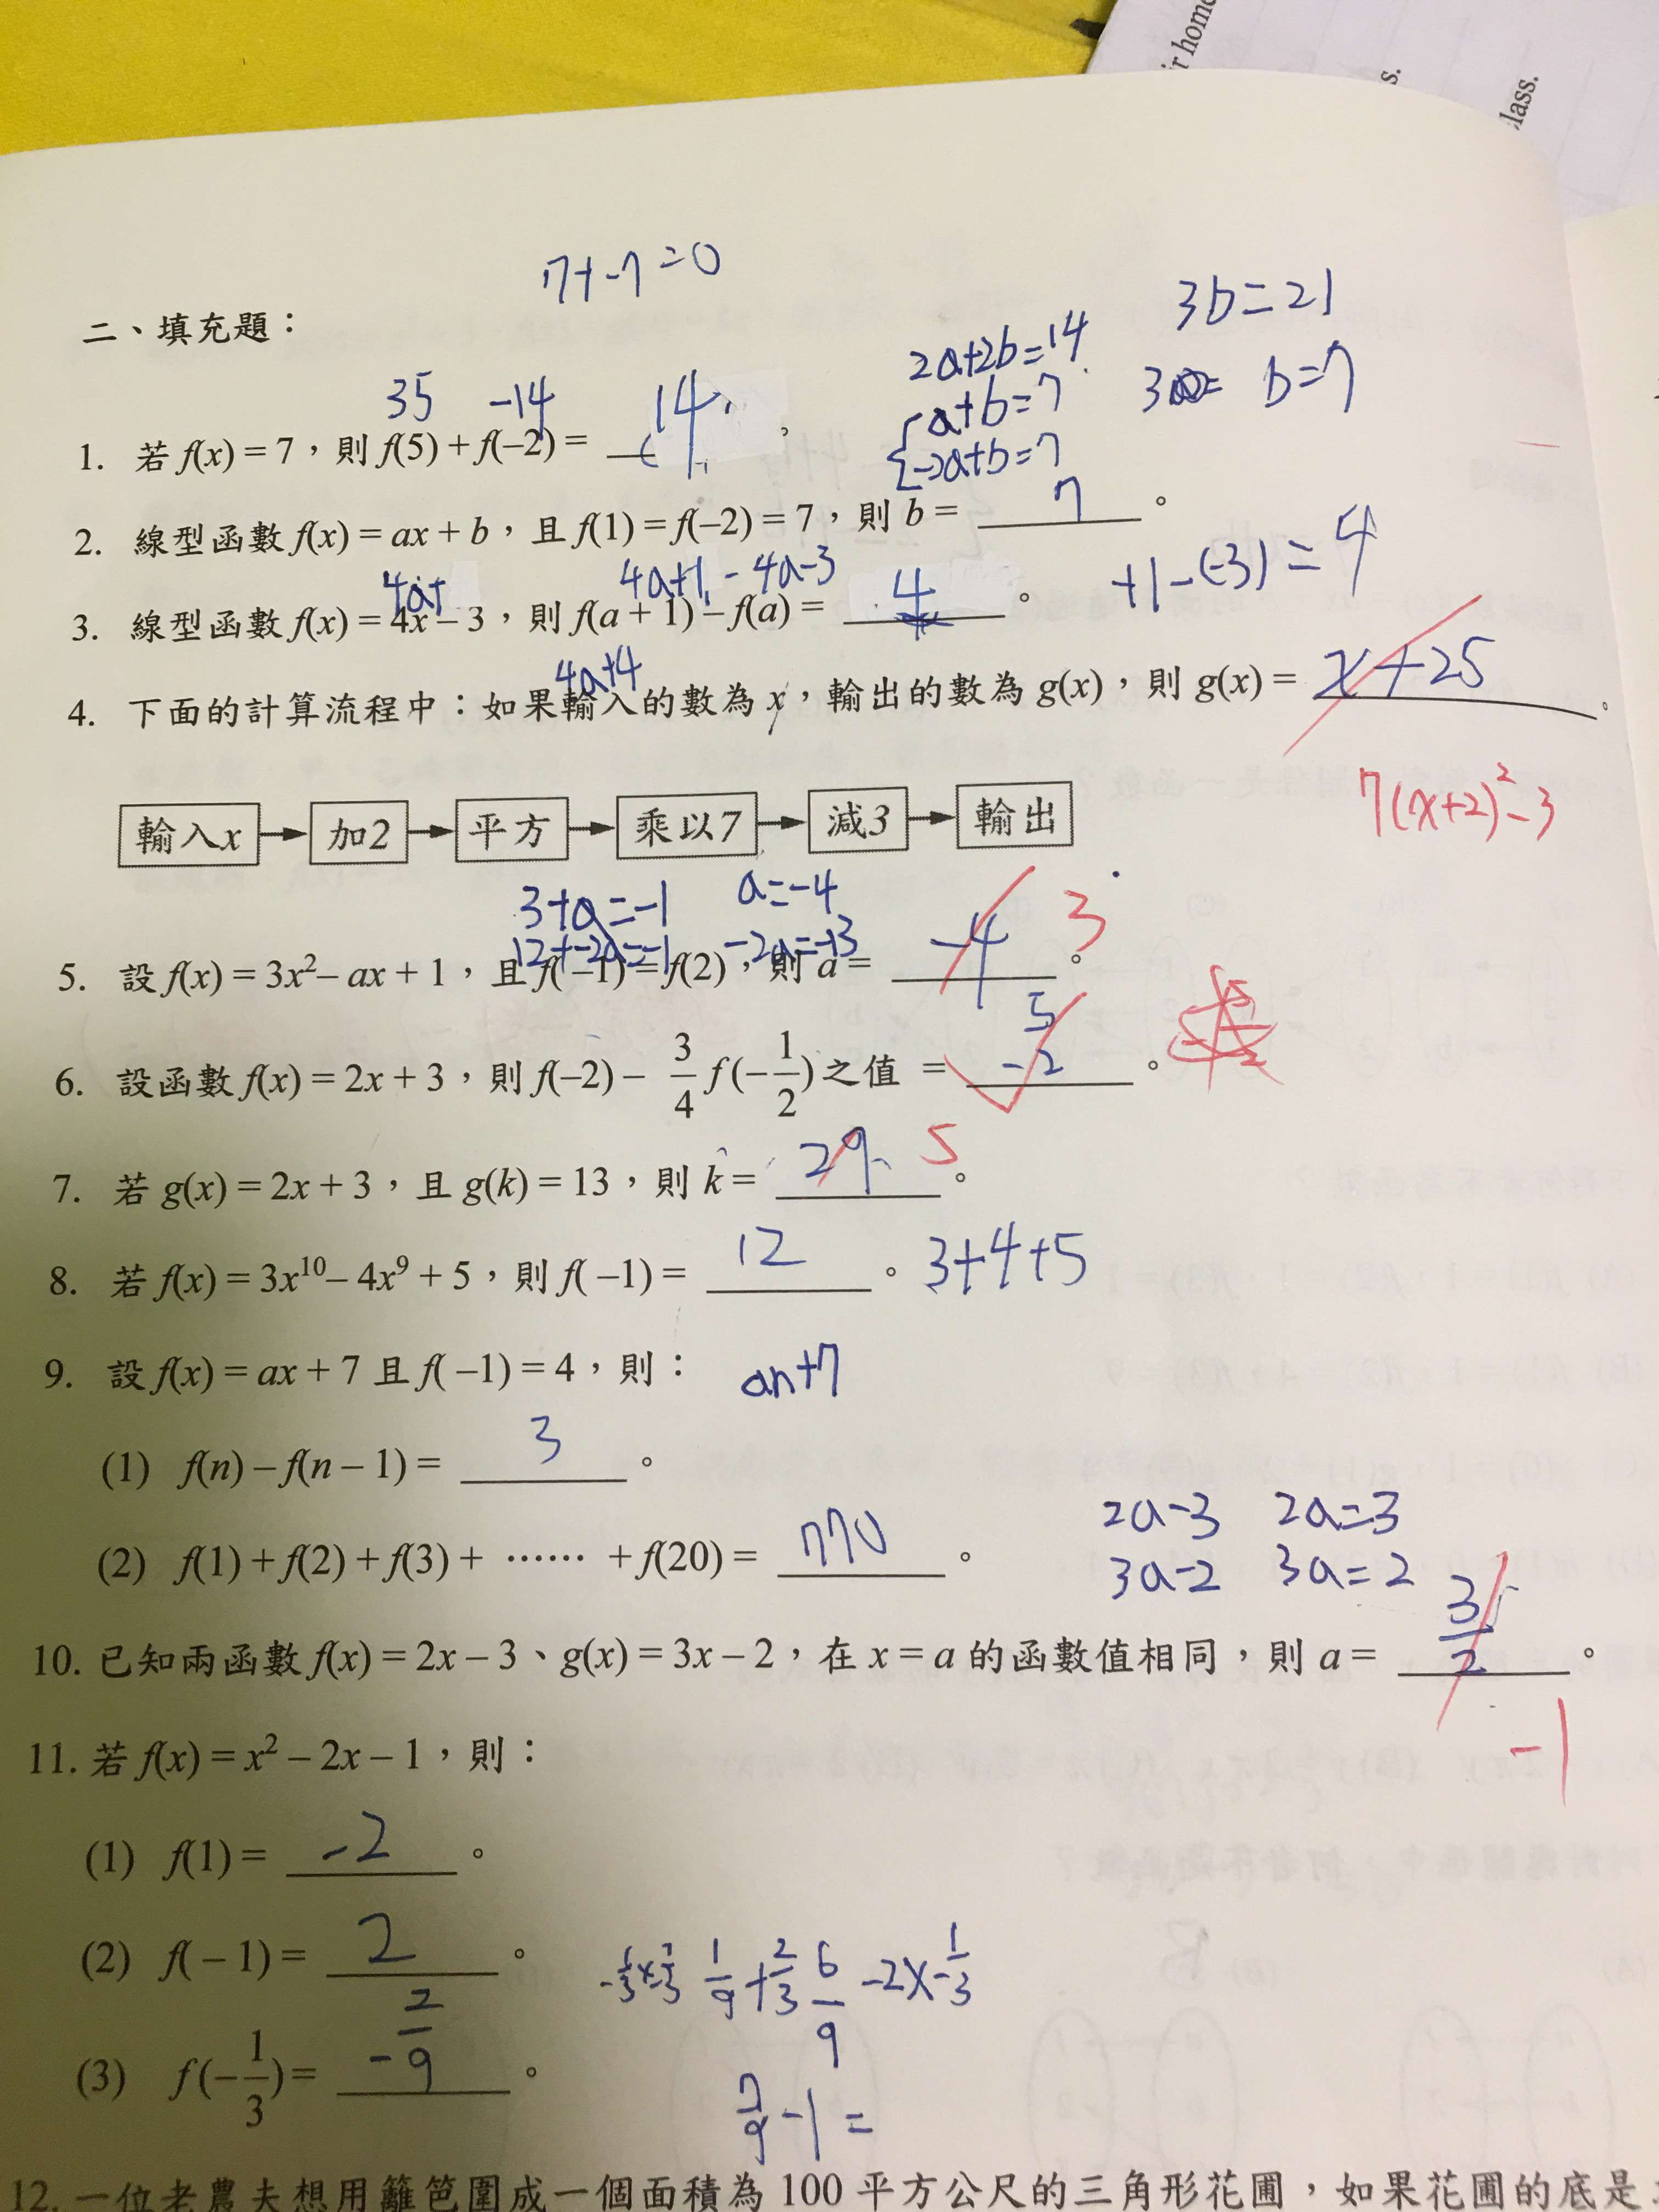 r home
s.
lass.
7+-7=0
二、填充題：
3b=21
2a+2b=14
a+b=7
-2a+b=7
b=7
35 -14
1. 若 f(x) = 7，則 f(5) + f(–2) = 14
2. 線型函數 f(x) = ax + b，且 f(1) = f(–2) = 7，則 b = 7。
4a+ 4a+1 - 4a-3 +1-(-3)=4
3. 線型函數 f(x) = 4x – 3，則 f(a + 1) – f(a) = 4。
4a+4
4. 下面的計算流程中：如果輸入的數為 x，輸出的數為 g(x)，則 g(x) = x+25。
7(x+2)²-3
輸入x 加2 平方 乘以7 減3 輸出
3+a=-1 a=-4
12+-2a=-1 -2a=-13
5. 設 f(x) = 3x² – ax + 1，且 f(–1) = f(2)，則 a = -4。 3
6. 設函數 f(x) = 2x + 3，則 f(–2) – 3/4 f(–1/2)之值 = -5/2。
7. 若 g(x) = 2x + 3，且 g(k) = 13，則 k = 29。 5
8. 若 f(x) = 3x¹⁰ – 4x⁹ + 5，則 f( –1) = 12。 3+4+5
9. 設 f(x) = ax + 7 且 f( –1) = 4，則： an+7
(1) f(n) – f(n – 1) = 3。
(2) f(1) + f(2) + f(3) + …… + f(20) = 770。
2a-3 2a=3
3a-2 3a=2
10. 已知兩函數 f(x) = 2x – 3、g(x) = 3x – 2，在 x = a 的函數值相同，則 a = 3/2。
-1
11. 若 f(x) = x² – 2x – 1，則：
(1) f(1) = -2。
(2) f( – 1) = 2。
1/9+2/3 6/9 -2x-1/3
(3) f(–1/3) = -2/9。
7/9-1=
12. 一位老農夫想用籬笆圍成一個面積為 100 平方公尺的三角形花圃，如果花圃的底是